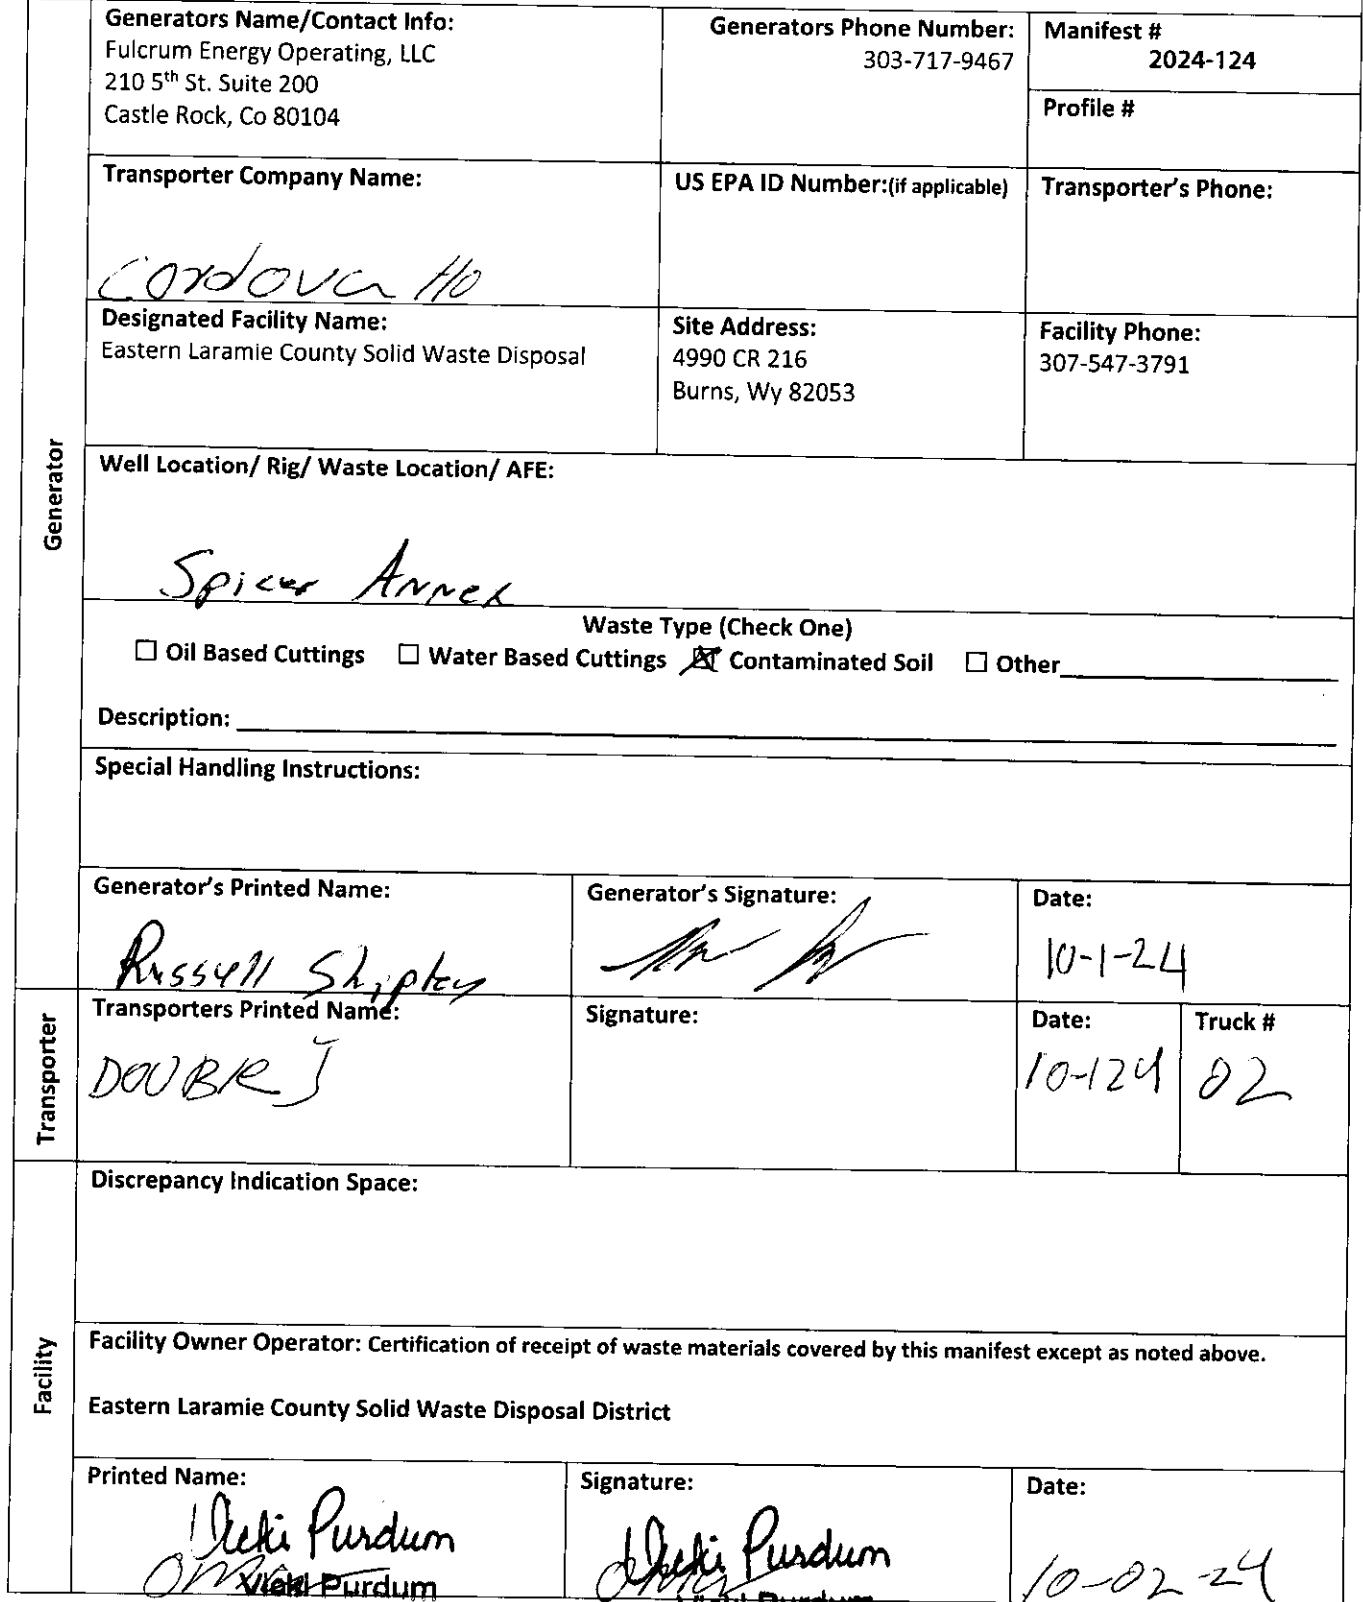 Generators Name/Contact Info:
Fulcrum Energy Operating, LLC
210 5th St. Suite 200
Castle Rock, Co 80104
Generators Phone Number:
303-717-9467
Manifest #
2024-124
Profile #
Transporter Company Name:
Cordova Ho
US EPA ID Number:(if applicable)
Transporter's Phone:
Designated Facility Name:
Eastern Laramie County Solid Waste Disposal
Site Address:
4990 CR 216
Burns, Wy 82053
Facility Phone:
307-547-3791
Generator
Well Location/ Rig/ Waste Location/ AFE:
Spicer Annex
Waste Type (Check One)
☐ Oil Based Cuttings ☐ Water Based Cuttings ☒ Contaminated Soil ☐ Other
Description:
Special Handling Instructions:
Generator's Printed Name:
Russell Shipley
Generator's Signature:
Date:
10-1-24
Transporter
Transporters Printed Name:
DOUBLE J
Signature:
Date:
10-124
Truck #
02
Facility
Discrepancy Indication Space:
Facility Owner Operator: Certification of receipt of waste materials covered by this manifest except as noted above.
Eastern Laramie County Solid Waste Disposal District
Printed Name:
Vicki Purdum
Vicki Purdum
Signature:
Vicki Purdum
Vicki Purdum
Date:
10-02-24